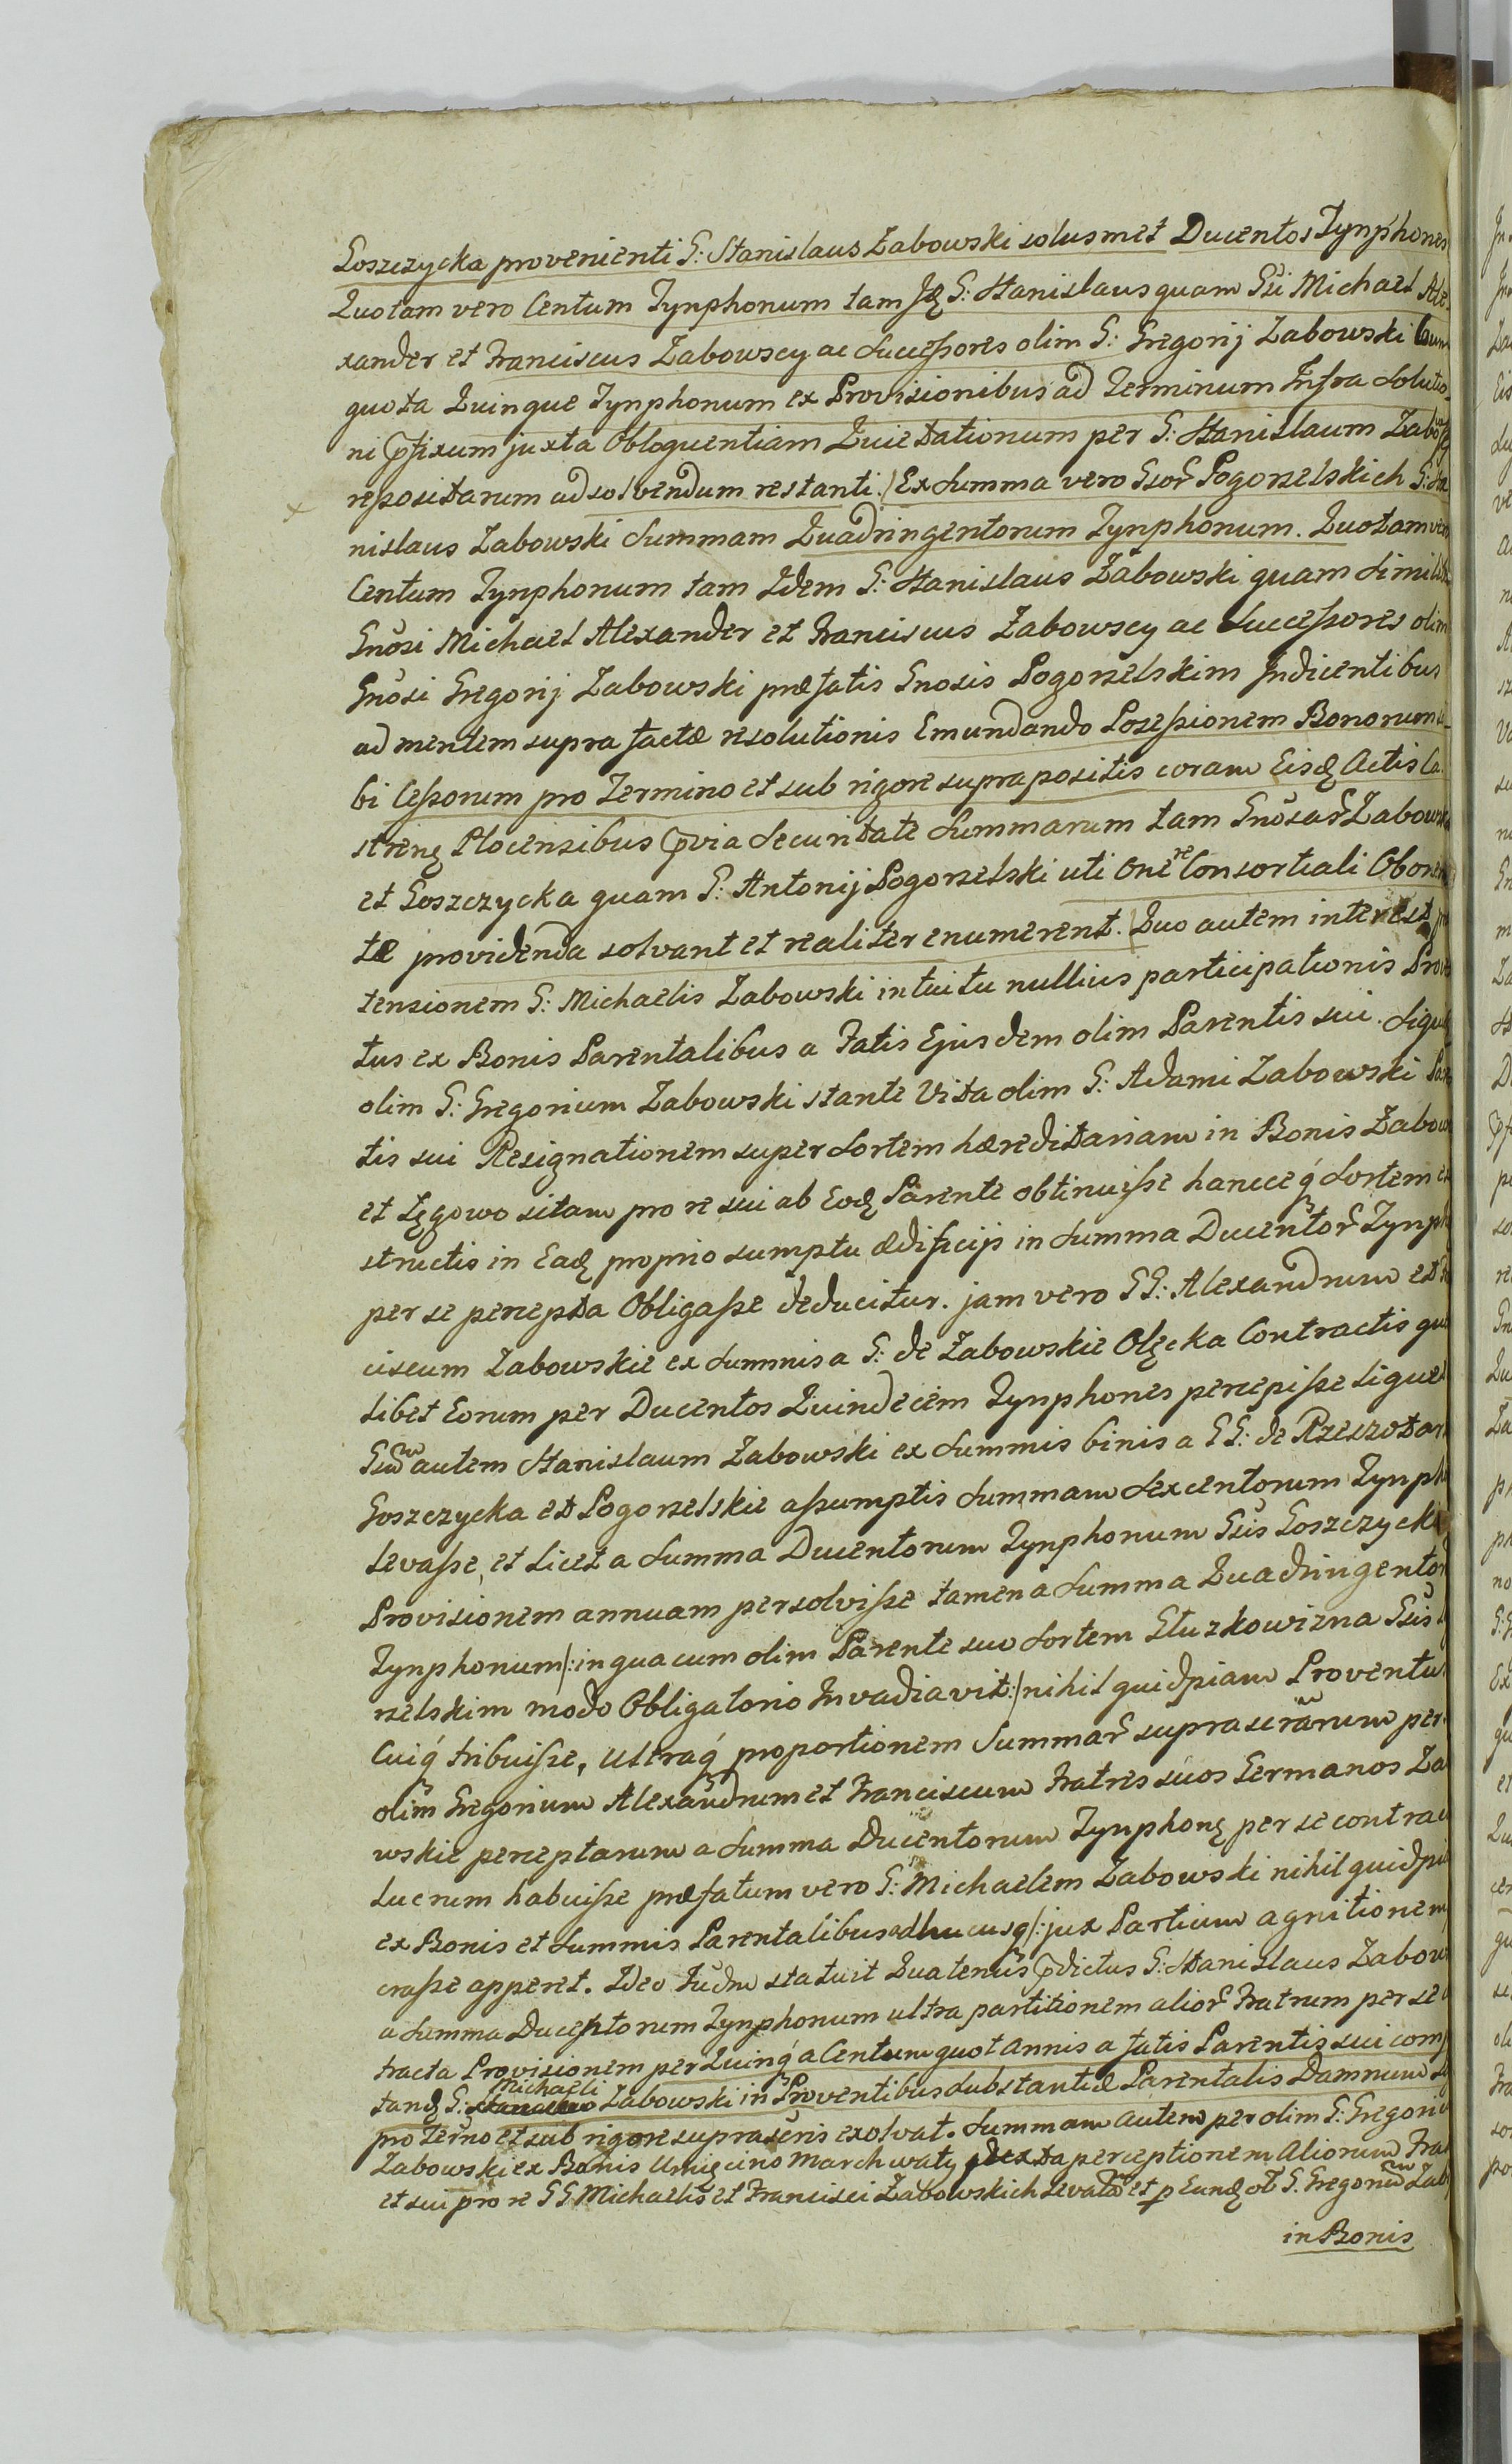 Goszczycka provenienti G: Stanislaus Zabowski solusmet Ducentos Tynphones
Quotam vero Centum Tynphonum tam Jđ G: Stanislaus quam Gsi Michael Ale
xander et Franciscus Zabowscy ac Successores olim G: Gregorij Zabowski Cum
quota Quinque Tynphonum ex Provisionibus ad Terminum Infra Solutio-
ni pfixum juxta Obloquentiam Quietationum per G: Stanislaum Zabowski
repositarum ad solvendum restanti:/ Ex Summa vero Gsor Pogorzelskich G: Sta
nislaus Zabowski Summam Quadringentorum Tynphonum. Quotam vero
Centum Tynphonum tam Idem G: Stanislaus Zabowski quam Similiter
Gnosi Michael Alexander et Franciscus Zabowscy ac Successores olim
Gnosi Gregorij Zabowski præfatis Gnosis Pogorzelskim Indicentibus
ad mentem supra factæ resolutionis Emundando Possessionem Bonorum si-
bi Cessorum pro Termino et sub rigore suprapositis coram Eisđ Actis Ca-
stren Plocensibus pvia Securitate Summarum tam Gnosar Zabowska
et Goszczycka quam G: Antonij Pogorzelski uti One Consortiali Obone
tæ providenda solvant et realiter enumerent. Quo autem interest præ
tensionem G: Michaelis Zabowski intuitu nullius participationis Proven
tus ex Bonis Parentalibus a Fatis Ejusdem olim Parentis sui. Siquid
olim G: Gregorium Zabowski stante Vita olim G: Adami Zabowski Paren
tis sui Resignationem super Sortem hæreditariam in Bonis Zabow
et Łęgowo sitam pro re sui ab Eođ Parente obtinuisse hancceq Sortem ex
structis in Eađ proprio sumptu ædificijs in Summa Ducentor Tynph
per se percepta Obligasse deducitur. jam vero GG: Alexandrum et Fran
ciscum Zabowskie ex Summis a G: de Zabowskie Olęcka Contractis quem
libet Eorum per Ducentos Quindecim Tynphones percepisse liquet
Gsum autem Stanislaum Zabowski ex Summis binis a GG: de Rzeszotar
Goszczycka et Pogorzelskie assumptis Summam Sexcentorum Tynpho
levasse, et licet a Summa Ducentorum Tynphonum Gsis Goszczyckim
Provisionem annuam persolvisse tamen a Summa Quadringentor
Tynphonum/: in qua cum olim Parente suo Sortem Głuzkowizna Gsis
rzelskim modo Obligatorio Invadiavit:/ nihil quidpiam Proventu
Cuiq tribuisse, utraq proportionem Summar suprascrarum per
olim Gregorium Alexandrum et Franciscum Fratres suos Germanos Za
wskie perceptarum a Summa Ducentorum Tynphonę per se contrac
Lucrum habuisse præfatum vero G: Michaelem Zabowski nihil quidpia
ex Bonis et Summis Parentalibus adhucusq/: jux Partium agnitionem
crasse apperet. Ideo Judm statuit Quatenus pdictus G: Stanislaus Zabow
a Summa Ducentorum Tynphonum ultra partitionem alior Fratrum per se
tracta Provisionem per Quinq a Centum quot annis a fatis Parentis sui comp
tanđ G: Michaeli Zabowski in Proventibus Substantiæ Parentalis Damnum
pro Terno et sub rigore suprascris exolvat. Summam autem per olim G: Gregori
Zabowski ex Bonis Umięcino Marchwaty perceptionem Aliorum Fra
et sui pro re GG Michaelis et Francisci Zabowskich levata et p Eunđ ol G. Gregorium Zab
in Bonis